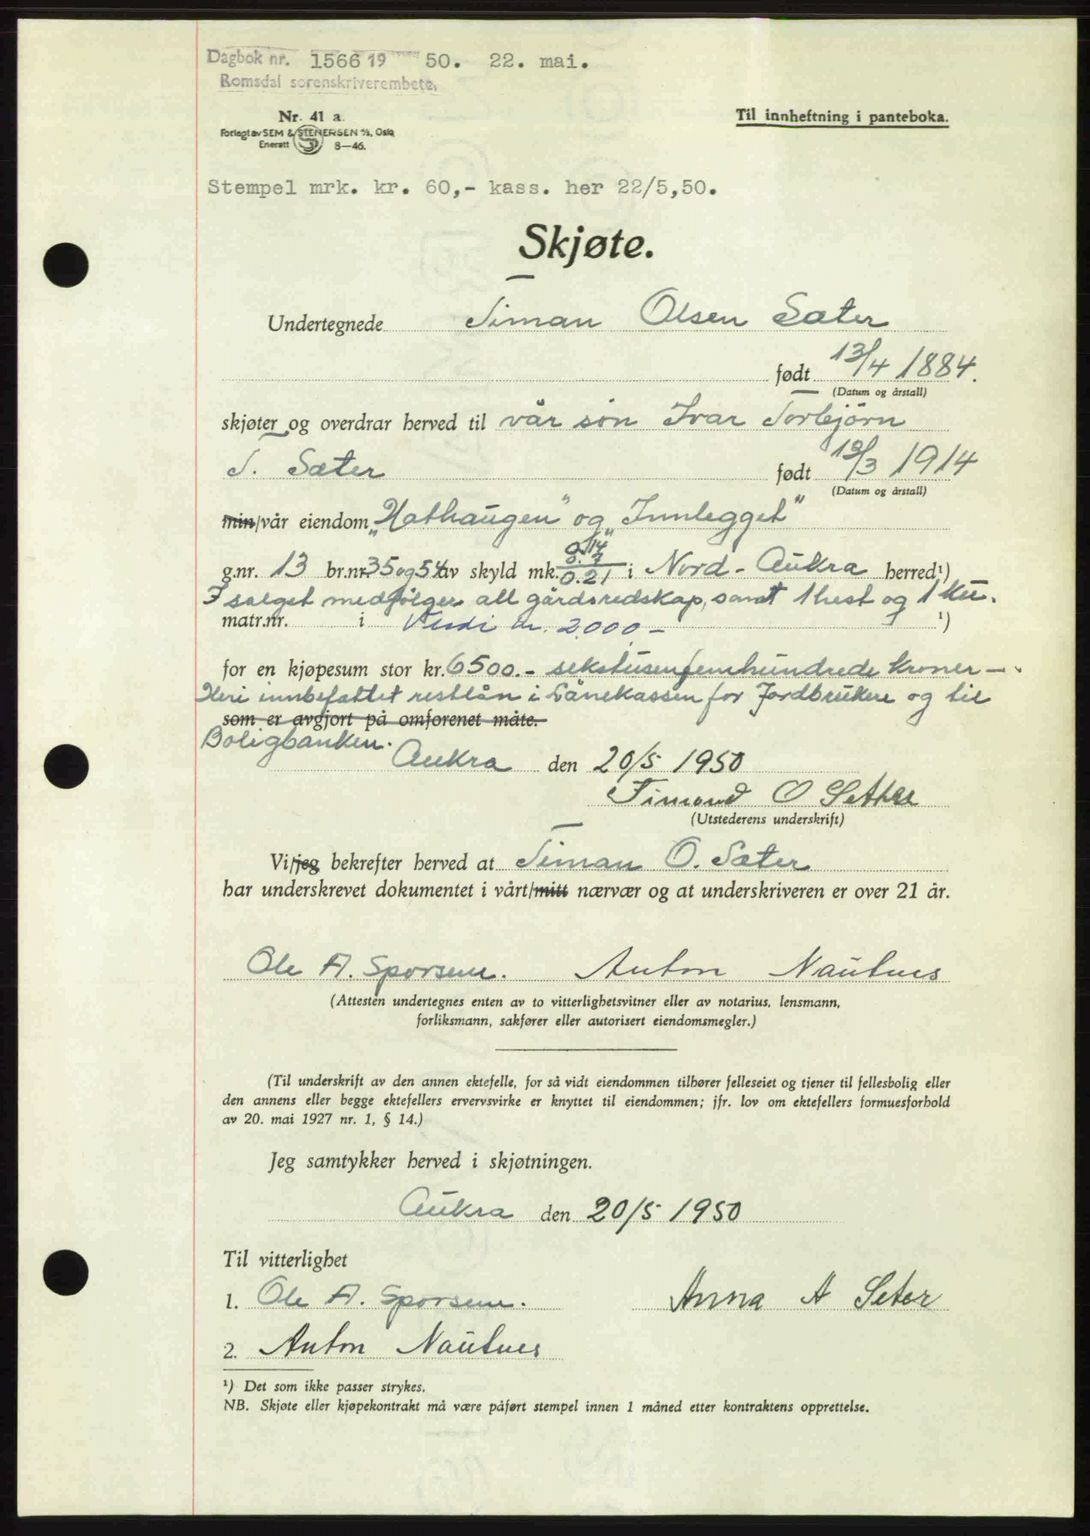 Dagbok nr. 1566 19 50. 22. mai.
Romsdal sorenskriverembete.
Nr. 41 a.
Til innheftning i panteboka.
Forlagt av SEM & STENERSEN A/S, Oslo
Enerett 8—46.
Stempel mrk. kr. 60,- kass. her 22/5,50.
Skjøte.
Undertegnede Timan Olsen Sæter
født 13/4 1884.
(Datum og årstall)
skjøter og overdrar herved til vår søn Ivar Torbjörn
T. Sæter født 12/3 1914
(Datum og årstall)
min/vår eiendom „Hathaugen" og „Innlegget"
g.nr. 13 br.nr. 35 og 54 av skyld mk. 0.14 0.7 0.21 i Nord-Aukra herred¹)
I salget medfølger all gårdsredskap, samt 1 hest og 1 ku.
matr.nr. i Verdi kr. 2000,- ¹)
for en kjøpesum stor kr. 6500.- sekstusenfemhundrede kroner —
Heri innbefattet restlån i Lånekassen for Jordbrukere og til
som er avgjort på omforenet måte.
Boligbanken.
Aukra den 20/5 1950
Timand O Setter
(Utstederens underskrift)
Vi/jeg bekrefter herved at Timan O. Sæter
har underskrevet dokumentet i vårt/mitt nærvær og at underskriveren er over 21 år.
Ole A. Sporsem. Anton Nautnes
(Attesten undertegnes enten av to vitterlighetsvitner eller av notarius, lensmann,
forliksmann, sakfører eller autorisert eiendomsmegler.)
(Til underskrift av den annen ektefelle, for så vidt eiendommen tilhører felleseiet og tjener til fellesbolig eller
den annens eller begge ektefellers ervervsvirke er knyttet til eiendommen; jfr. lov om ektefellers formuesforhold
av 20. mai 1927 nr. 1, § 14.)
Jeg samtykker herved i skjøtningen.
Aukra den 20/5 1950
Til vitterlighet
1. Ole A. Sporsem. Anna A Seter
2. Anton Nautnes
¹) Det som ikke passer strykes.
NB. Skjøte eller kjøpekontrakt må være påført stempel innen 1 måned etter kontraktens opprettelse.